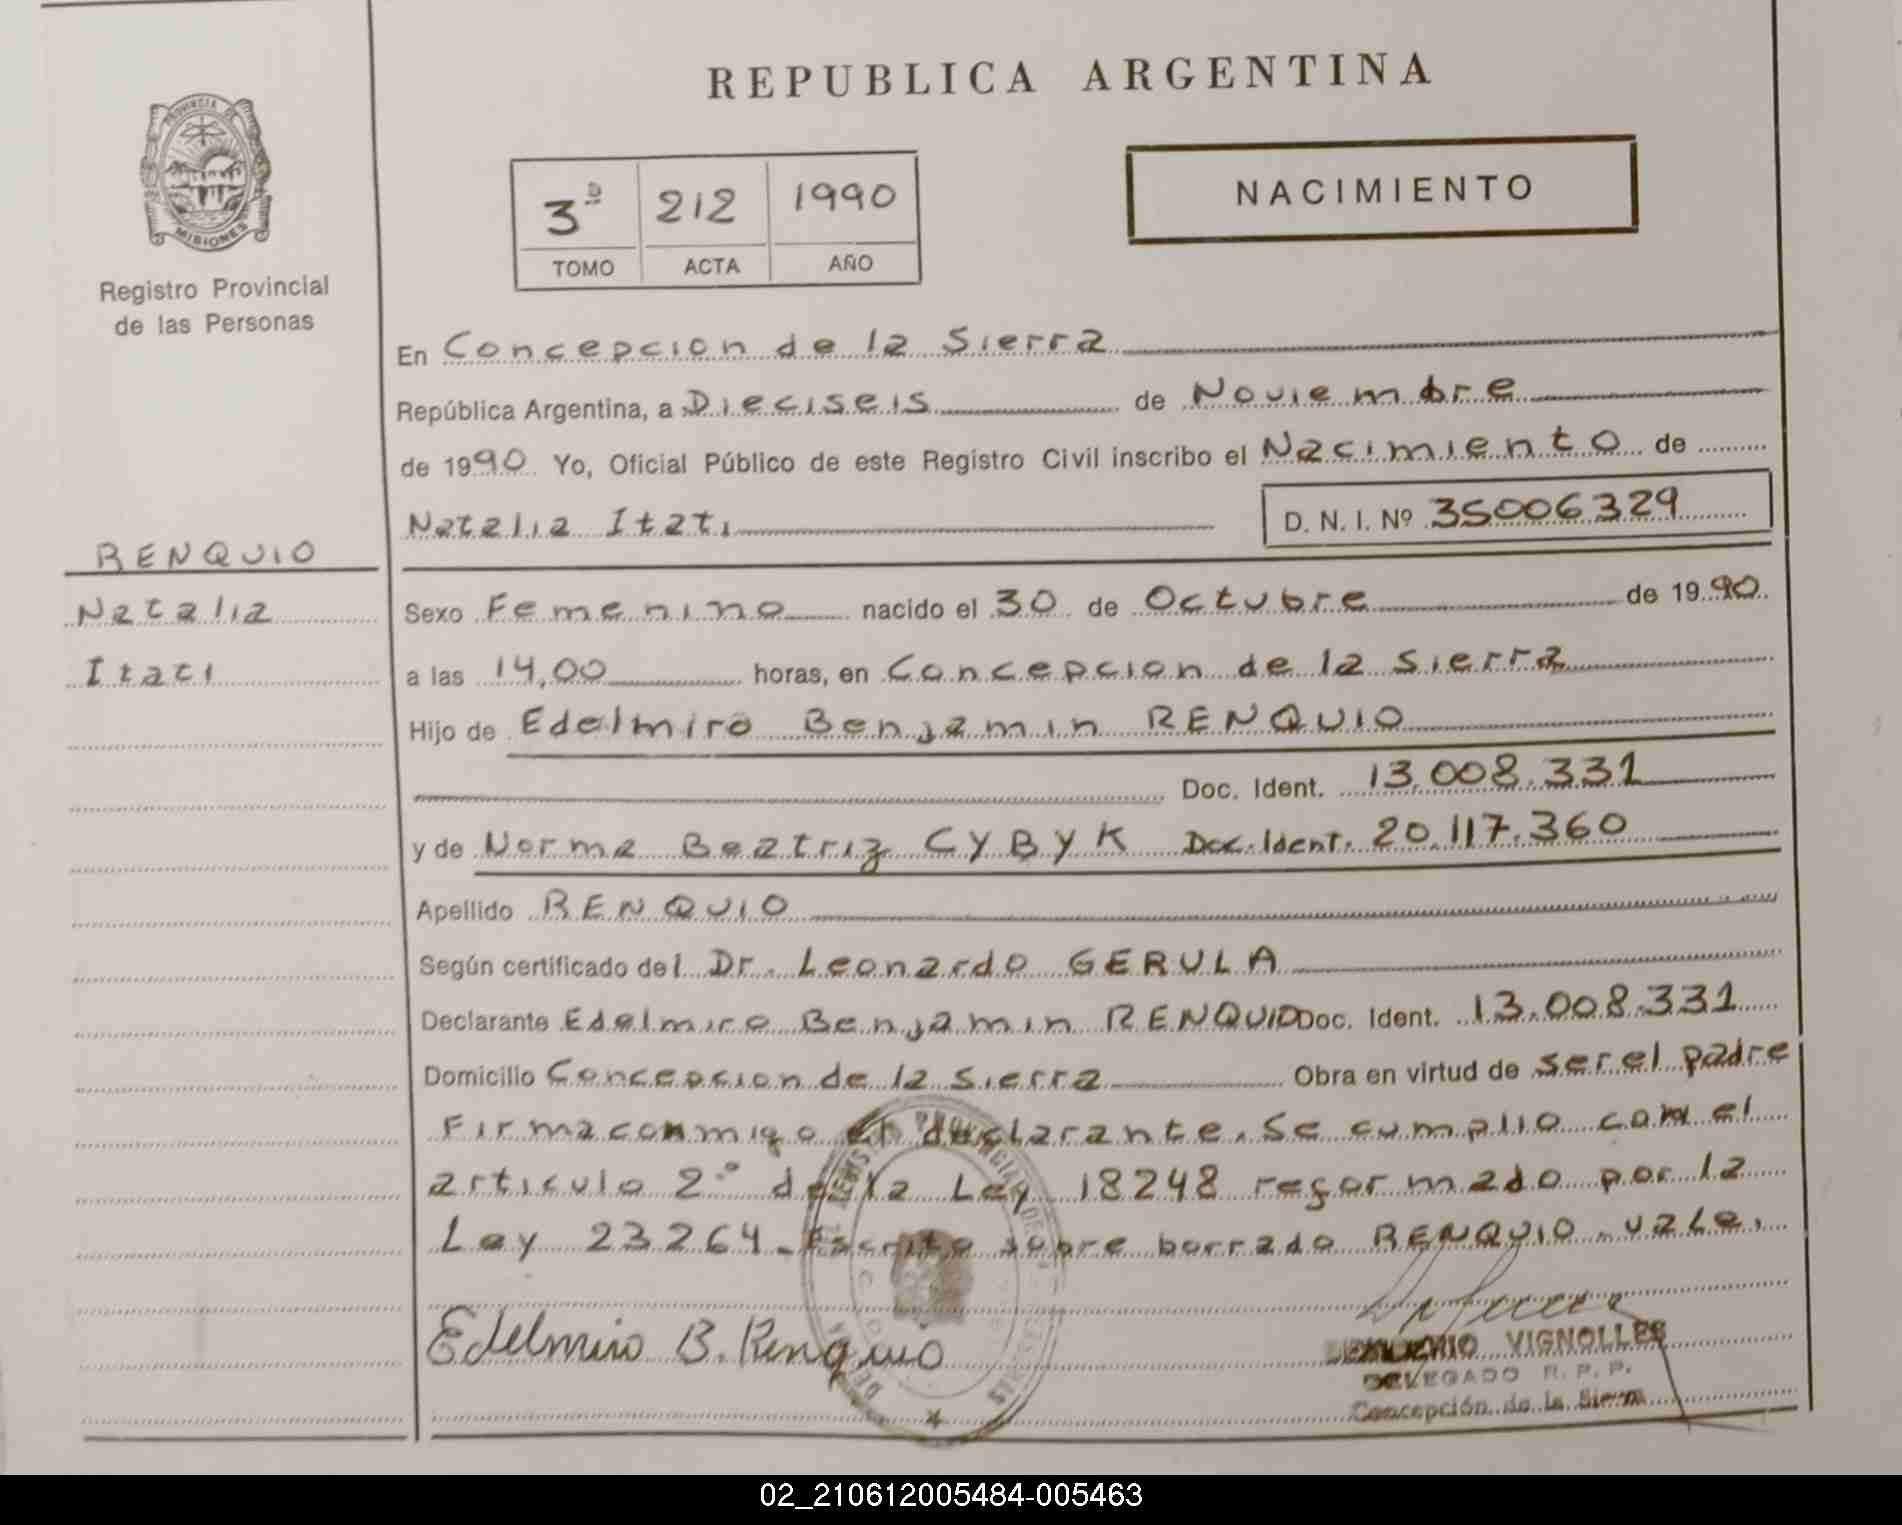 REPUBLICA ARGENTINA
PROVINCIA DE
MISIONES
Registro Provincial
de las Personas
3º 212 1990
TOMO ACTA AÑO
NACIMIENTO
En Concepcion de la Sierra
República Argentina, a Dieciseis de Noviembre
de 1990 Yo, Oficial Público de este Registro Civil inscribo el Nacimiento de
Natalia Itati D. N. I. Nº 35006329
RENQUIO
Natalia
Itati
Sexo Femenino nacido el 30 de Octubre de 1990
a las 14,00 horas, en Concepcion de la Sierra
Hijo de Edelmiro Benjamin RENQUIO
Doc. Ident. 13.008.331
y de Norma Beatriz CYBYK Doc. Ident. 20.117.360
Apellido RENQUIO
Según certificado del Dr. Leonardo GERULA
Declarante Edelmiro Benjamin RENQUIO Doc. Ident. 13.008.331
Domicilio Concepcion de la Sierra Obra en virtud de ser el padre
Firma conmigo el declarante. Se cumplio con el
articulo 2º de la Ley 18248 reformado por la
Ley 23264. Escrito sobre borrado RENQUIO. vale.
Edelmiro B. Renquio
VIGNOLLES
DELEGADO R. P. P.
Concepción de la Sierra
02_210612005484-005463